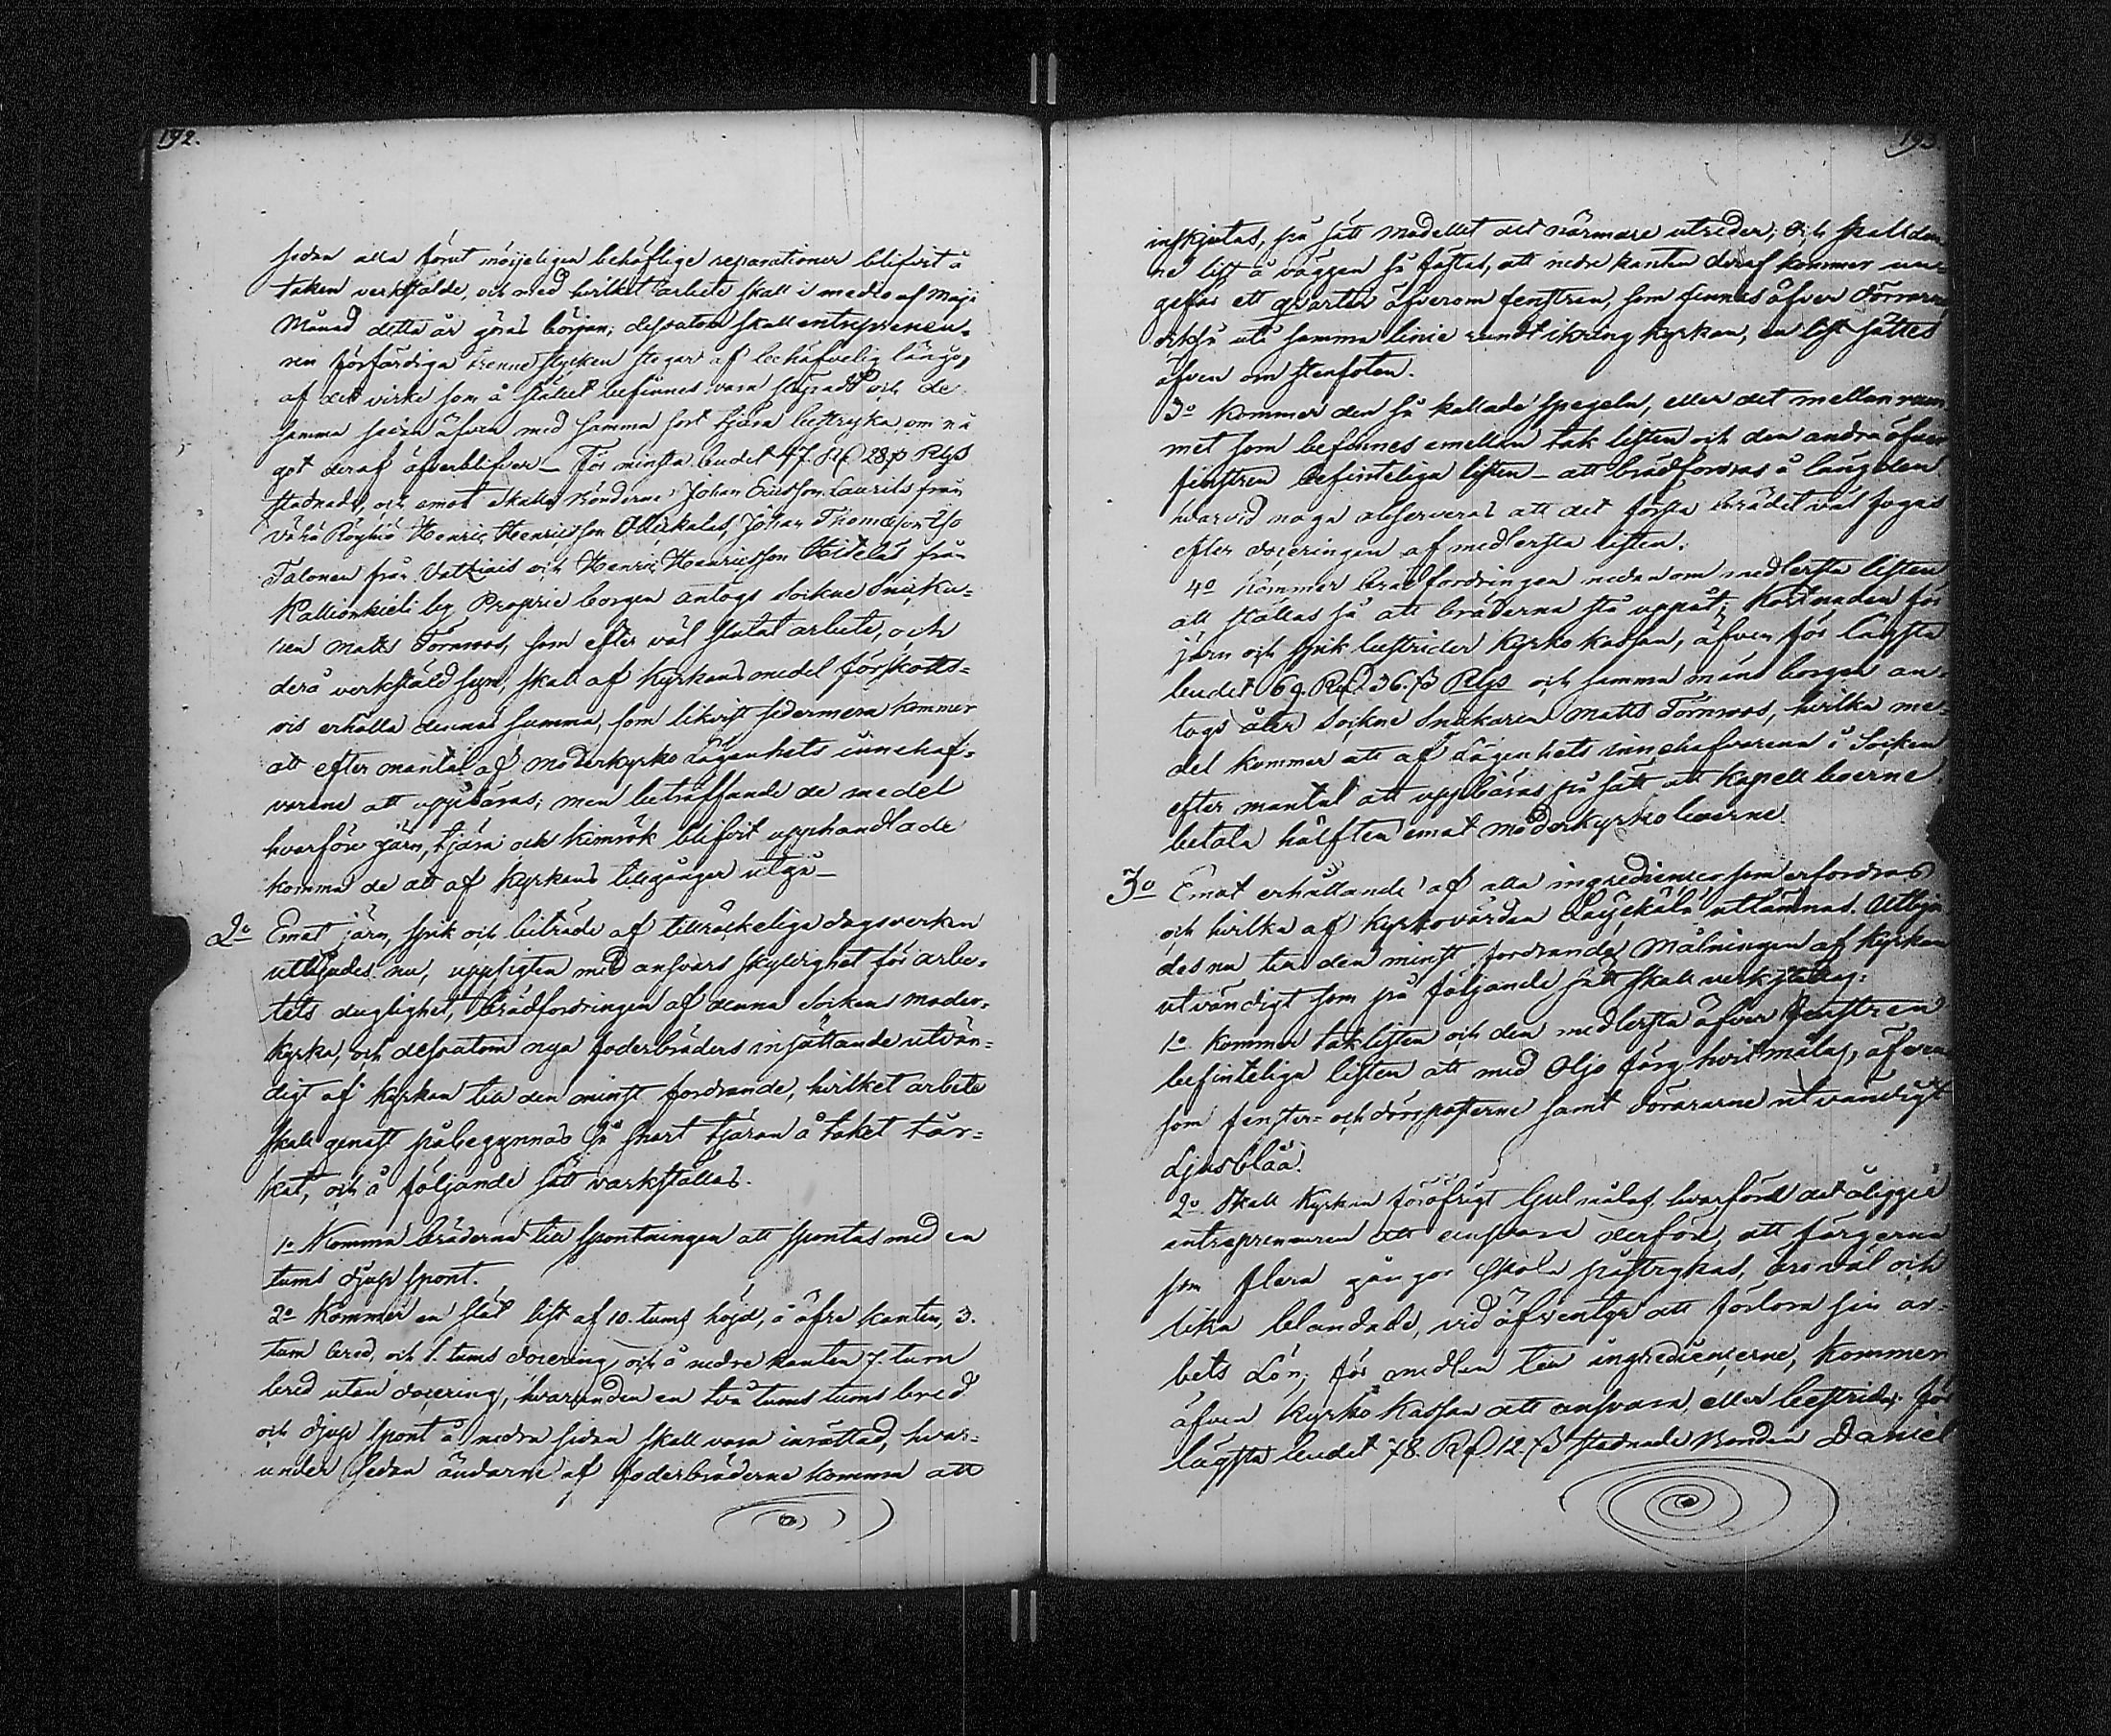 192.
sedan alla förut möjeligen behöflige reparationer blifvit å
taken verkstälde, och med hvilket arbete skall i medlo af Maji
Månad detta år göras början; dessutom skall entrepreneu-
ren förfärdiga trenne stycken stegar af behöfvelig längd,
af dett virke som å stället befinnes vara och de
samma sedan äfven med samma sort tjära bestryka, om nå
got deraf öfverblifver — För minsta budet 47. Rd 28 s Rgs
stadnade, och emot skalls Bönderne Johan Ericsson Laurila från
Vähä Röyhiö Henric Henricsson Ollikalas, Johan Thomasson Iso
Talonen från och Henric Henricsson från
Kallionkieli by Proprie borgen antogs Sockne Snicka-
ren Matts Törnroos, som efter väl slutat arbete, och
derå verkstäld syn, skall af Kyrkans medel förskotts-
vis erhålla denna summa, som likvist sedermera kommer
att efter mantal af Moderkyrko Lägenhets innehaf-
varene att uppbäras; men beträffande de medel
hvarföre järn, tjära och kimrök blifvit upphandlade
komma de att af Kyrkans tillgångar utgå —
2o Emot järn, spik och biträde af tillräckeliga dagsverken
utbjudes nu, uppsigten med ansvars skyldighet för arbe-
tets duglighet, brädfordringen af denna Socken Moder-
kyrka, och dessutom nya foderbräders insättande utvän-
digt af kyrkan till den minst fordrande, hvilket arbete
skall genast påbegynnas så snart tjäran å taket tor-
kat, och å följande sätt värkställas.
1o Komma bräderna till spontningen att spontas med en
tums djup spont.
2o Kommer en slät list af 10. tums höjd, å öfre kanten, 3.
tum bred, och 1. tums docering, och å nedre kanten 7. tum
bred utan docering, hvarunden en två tums tums bred
och djup spont å nedra sidan skall vara inrättad, hvar-
under sedan ändarne af foderbräderne komma att
193.
inskjutas, på sätt Modellet det närmare utreder; Och skall den
ne list å väggen så fästas, att nedre kanten deraf kommer un-
gefär ett qvarter öfverom fenstren, som finnes öfver Dörrarne,
också uti samma linie rundt ikring Kyrkan, en list sättes
äfven om stenfoten.
3o Kommer den så kallade spegeln, eller det mellanrum-
met som befinnes emellan tak listen och den andra öfver
fenstren befinteliga listen — att brädfordras å längden
hvarvid noga observeras att det första brädet väl fogas
efter doceringen af medlersta listen.
4o Kommer brädfordringen nedanom medlersta listen
att ställas så att bräderna stå uppåt; Kostnaden för
järn och spik bestrider Kyrko Kassan, äfven för lägsta
budet 69. Rd 36. s Rgs och samma mäns borgen an-
togs åter Sockne Snickaren Matts Törnroos, hvilka me-
del kommer att af Lägenhets innehafvarena i Socken
efter mantal att uppbäras på sätt att Kapell boerne
betala hälften emot moderkyrkoboerne
3o Emot erhållande af alla ingredienser som erfordras
och hvilka af Kyrkovärden utlämnas. Utbju-
des nu till den minst fordrande, Målningen af kyrkan
utvändigt som på följande sätt skall verkställas:
1o Kommer taklisten och den medlersta öfver fenstren
befinteliga listen att med Oljo färg hvit målas, äfven
som fenster- och dörrposterne samt dörrarne utvändigt
Ljusblåa.
2o Skall Kyrkan föröfrigt Gul målas, hvarföre det åligger
entreprenuren att ansvara derföre, att färgerna
som flera gånger skola påstrykas, äro väl och
lika blandade, vid äfventyr att förlora sin ar-
bets Lön; för medlen till ingredienserne, kommer
äfven Kyrko Kassan att ansvara eller bestrida. För
lägsta budet 78. Rd 12. s stadnade Bonden Daniel